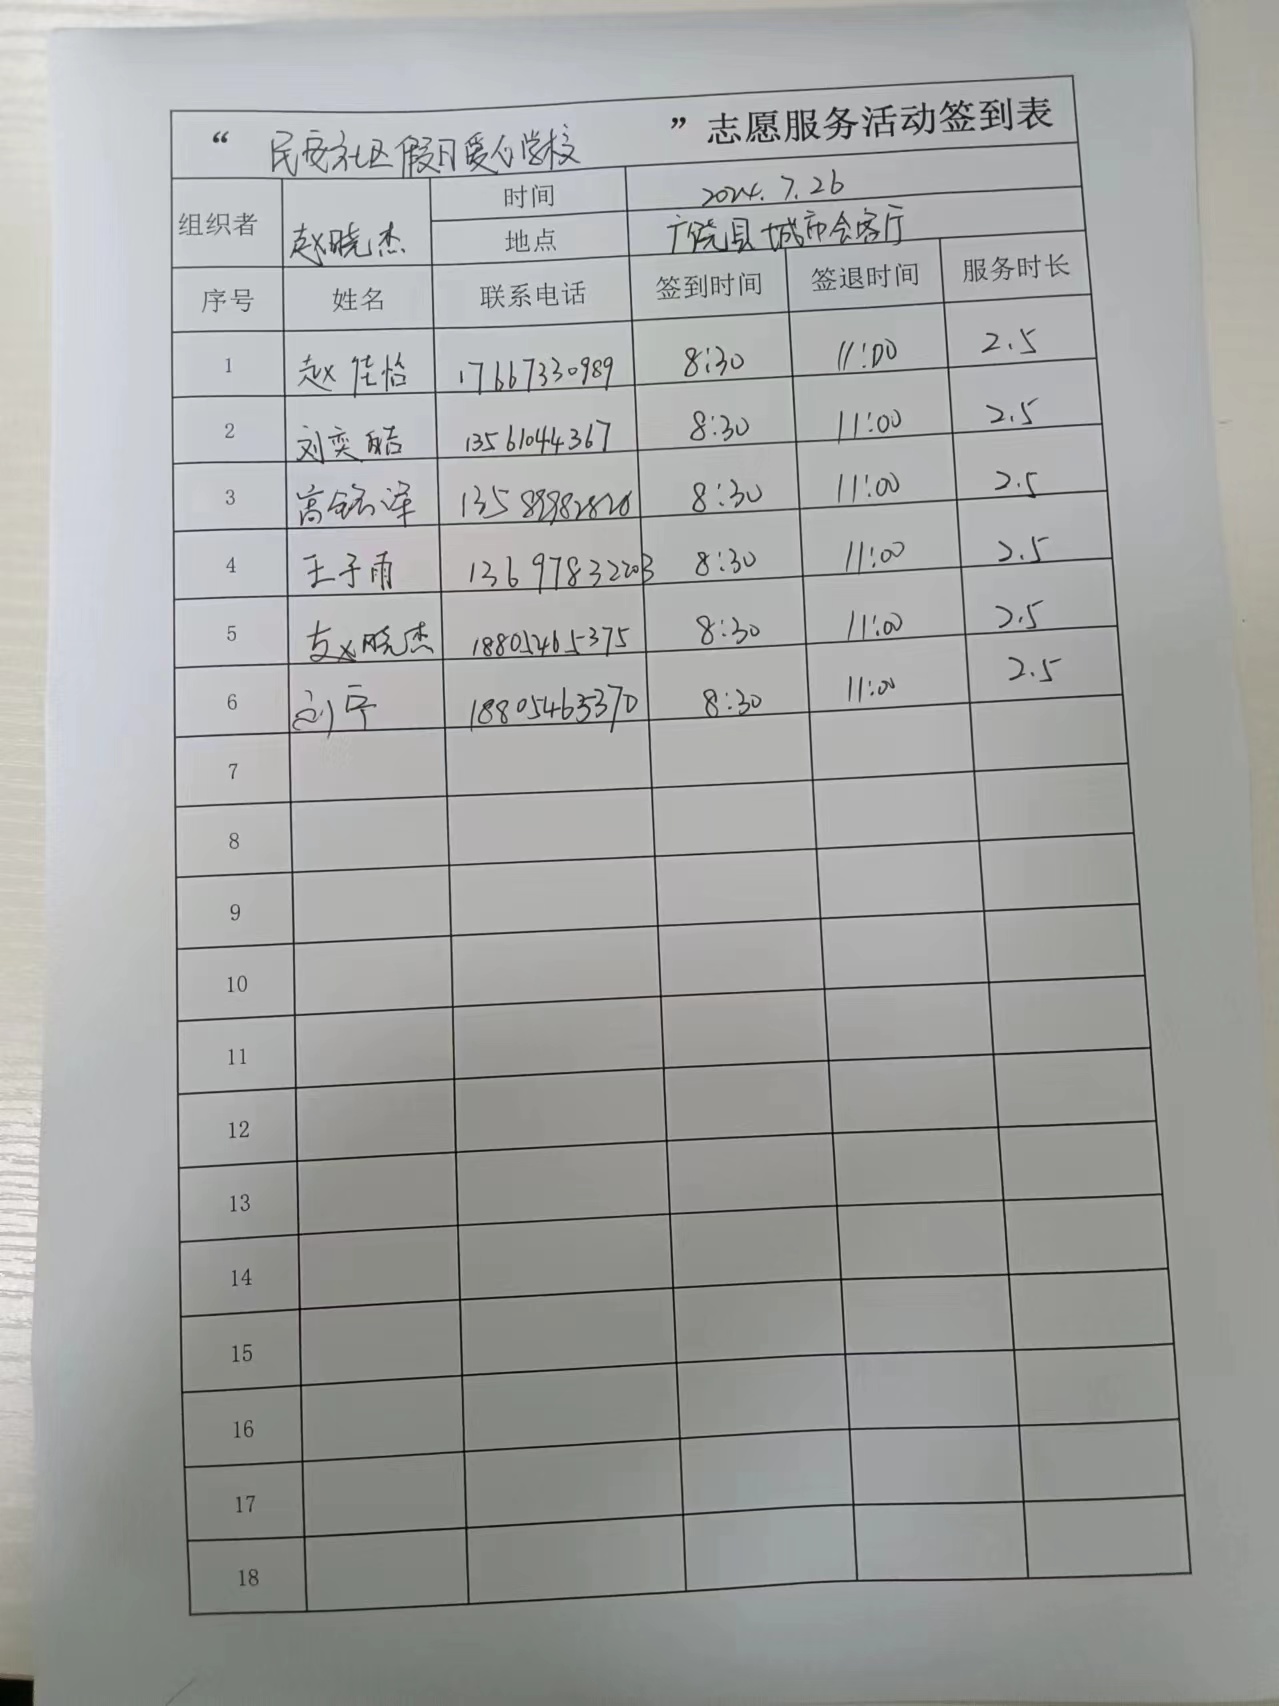 “ 民安社区假日爱心学校 ”志愿服务活动签到表
组织者 赵晓杰 时间 2024.7.26
地点 广饶县城市会客厅
序号 姓名 联系电话 签到时间 签退时间 服务时长
1 赵佳怡 17667330989 8:30 11:00 2.5
2 刘奕皓 13561044367 8:30 11:00 2.5
3 高铭泽 13589982820 8:30 11:00 2.5
4 王子雨 13697832203 8:30 11:00 2.5
5 赵晓杰 18805465375 8:30 11:00 2.5
6 刘宁 18805465370 8:30 11:00 2.5
7
8
9
10
11
12
13
14
15
16
17
18